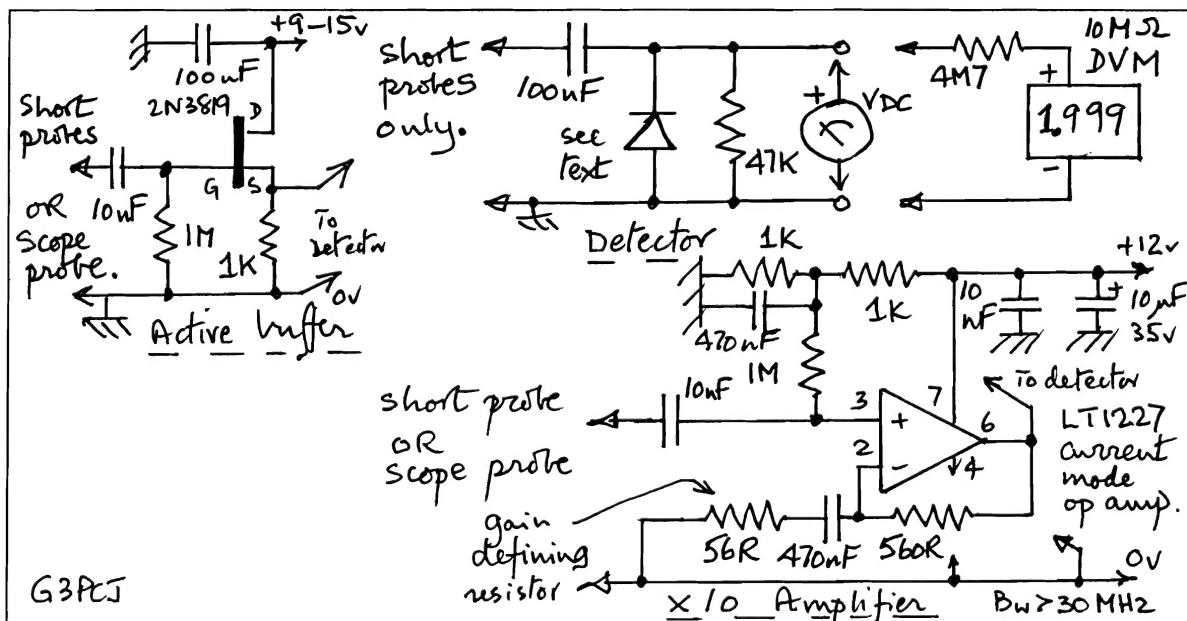 +9-15v
100nF
2N3819
D
G
S
Short
probes
10nF
OR
Scope
probe.
1M
1K
To
Detector
0v
Active buffer
Short
probes
only.
100nF
see
text
47K
+
VDC
4M7
10MΩ
DVM
+
1.999
-
Detector
1K
1K
470nF
1M
+12v
10
nF
+
10µF
35v
10nF
Short probe
OR
Scope probe
3
+
2
-
7
6
4
To detector
LT1227
current
mode
op amp.
gain
defining
resistor
56R
470nF
560R
0v
X10 Amplifier
Bw>30MHz
G3PCJ